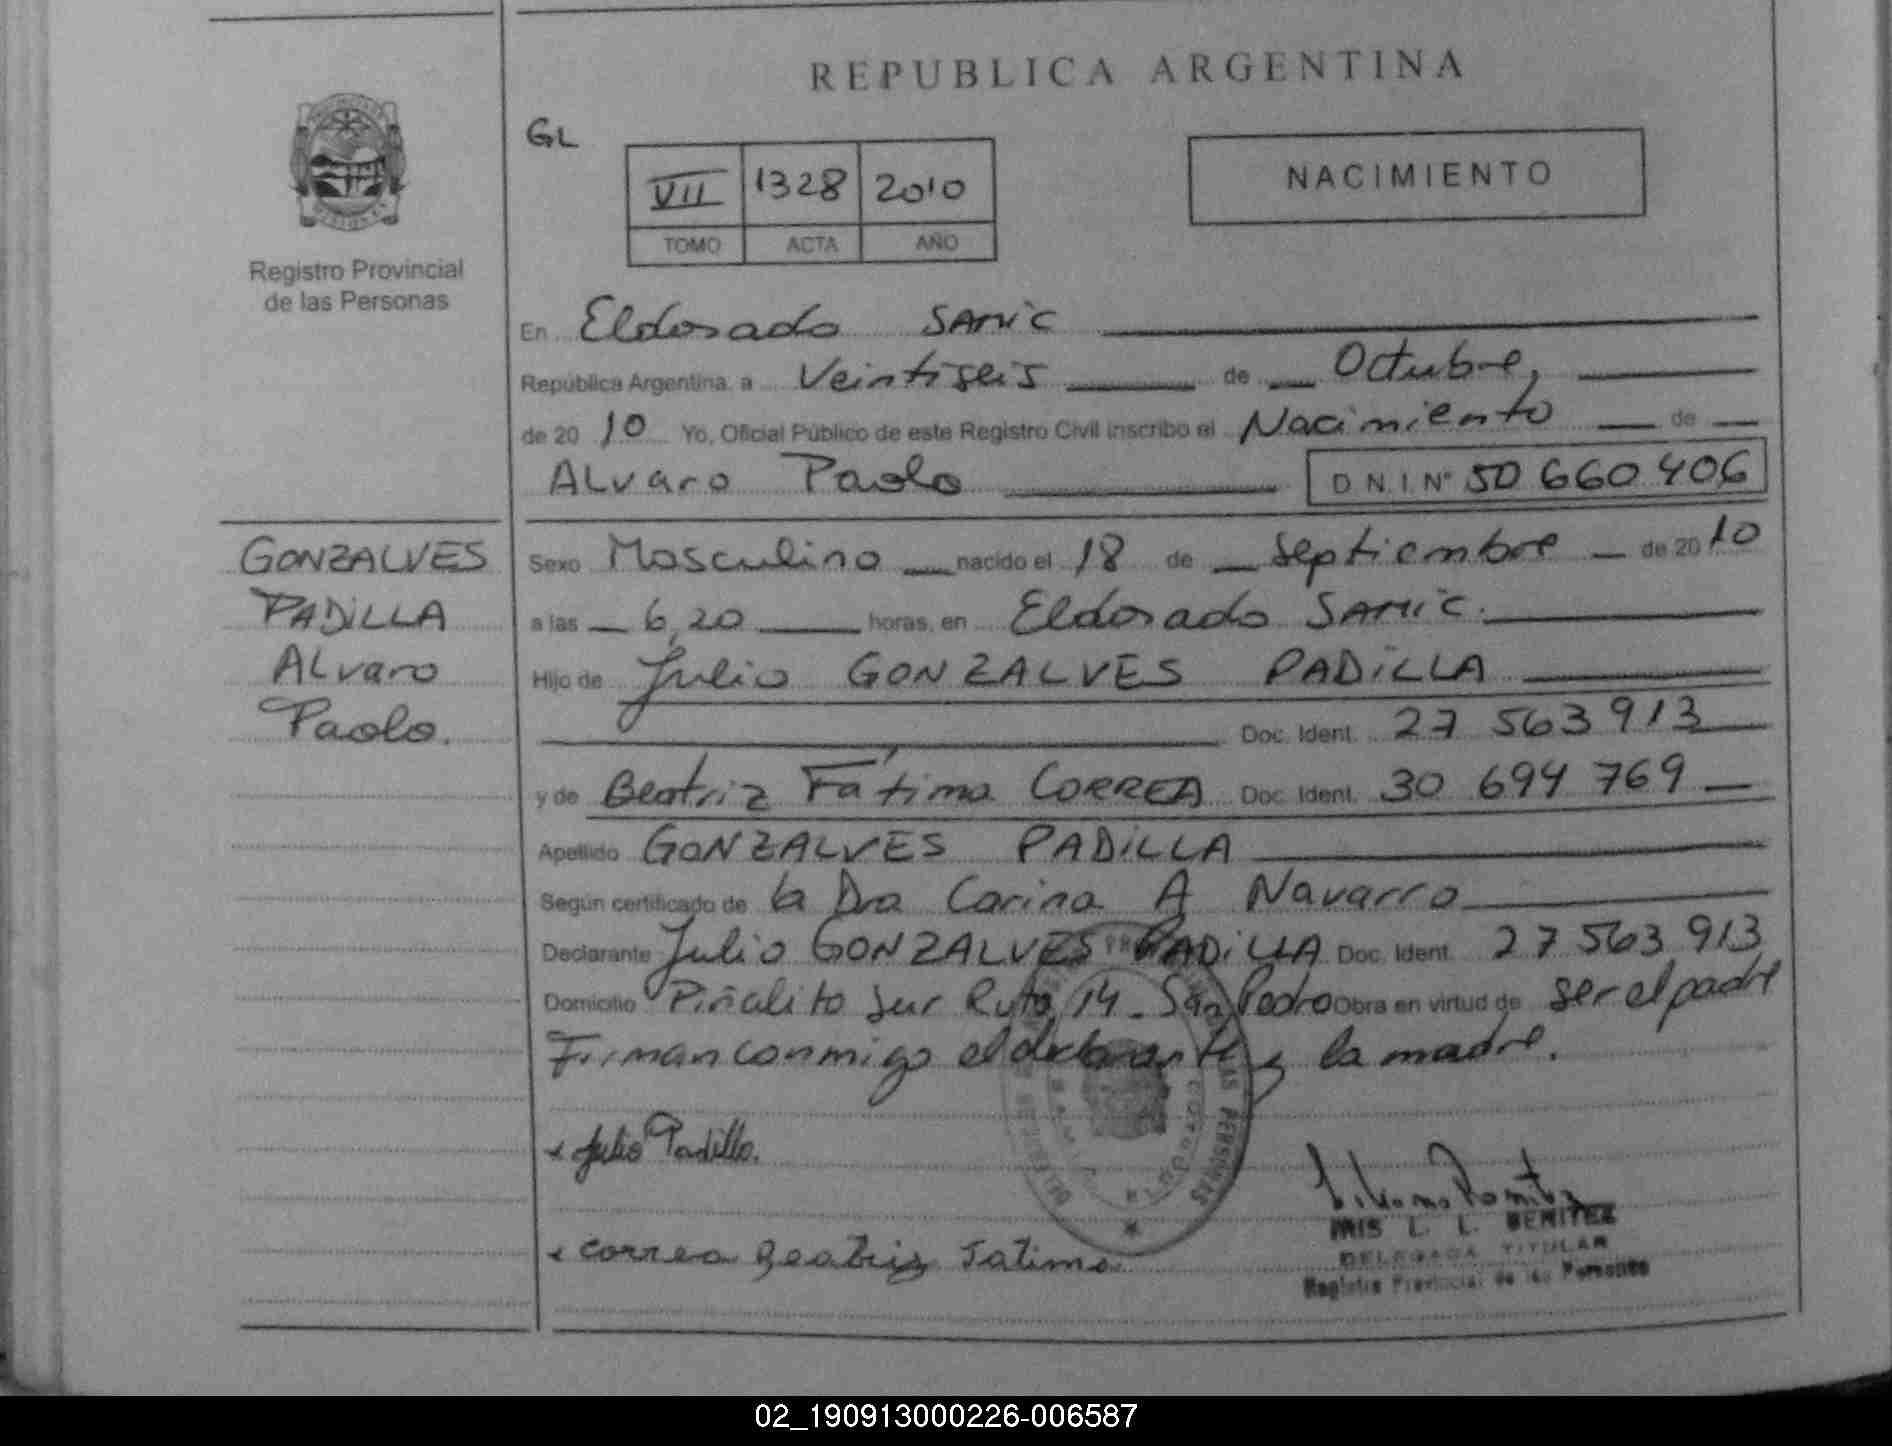 REPUBLICA ARGENTINA
GL
NACIMIENTO
VII 1328 2010
TOMO ACTA AÑO
Registro Provincial
de las Personas
En Eldorado SAMIC
República Argentina, a Veintiseis de Octubre,
de 20 10 Yo, Oficial Público de este Registro Civil inscribo el Nacimiento de
ALvaro Paolo D.N.I. Nº 50 660 406
GONZALVES
PADILLA
ALvaro
Paolo.
Sexo Masculino nacido el 18 de Septiembre de 20 10
a las 6,20 horas, en Eldorado SAMIC.
Hijo de Julio GONZALVES PADILLA
Doc. Ident. 27 563 913
y de Beatriz Fátima CORREA Doc. Ident. 30 694 769
Apellido GONZALVES PADILLA
Según certificado de la Dra Carina A Navarro
Declarante Julio GONZALVES PADILLA Doc. Ident. 27 563 913
Domicilio Piñalito Sur Ruta 14 - San Pedro Obra en virtud de ser el padre
Firman conmigo el declarante y la madre.
x Julio Padillo.
x correa Beatriz Fatima
IRIS L. L. BENITEZ
DELEGADA TITULAR
Registro Provincial de las Personas
02_190913000226-006587